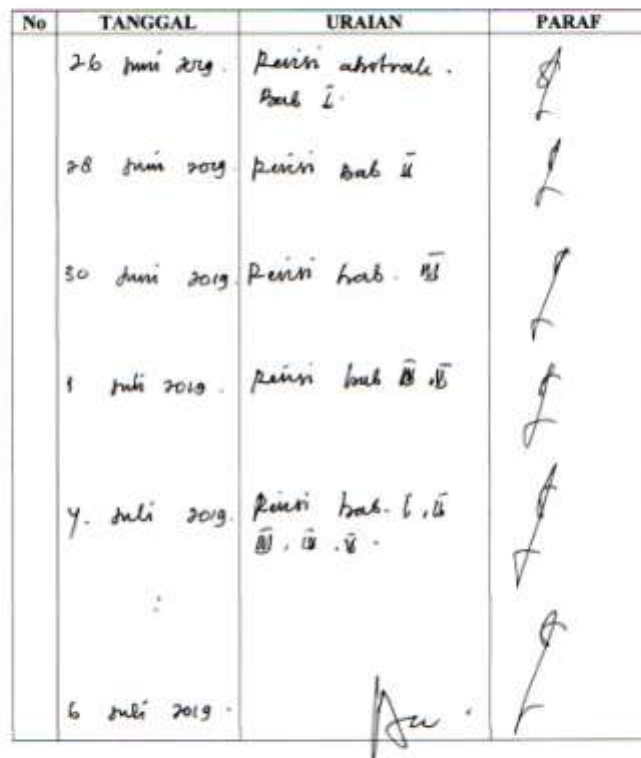 No TANGGAL URAIAN PARAF
26 Juni 2019. Revisi abstrak.
Bab I.
28 Juni 2019 Revisi Bab II
30 Juni 2019. Revisi bab. III
1 Juli 2019. Revisi bab IV, V
4. Juli 2019. Revisi bab. I, II
III, IV, V.
6 Juli 2019.